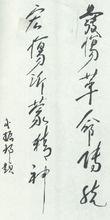 發揚革命傳統
宏揚沂蒙精神